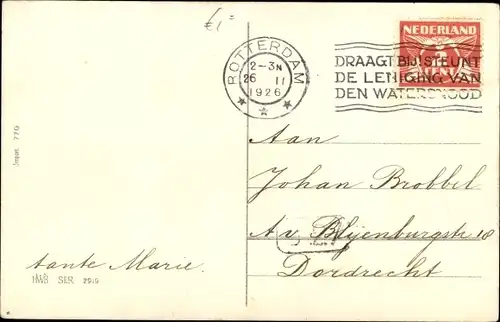 €1=
NEDERLAND
ROTTERDAM
2-3N
26 II
1926
DRAAGT BIJ! STEUNT
DE LENIGING VAN
DEN WATERSNOOD
Aan
Johan Brobbel
A v. Blijenburgstr 18
Dordrecht
tante Marie.
Import 770
SER. 2949